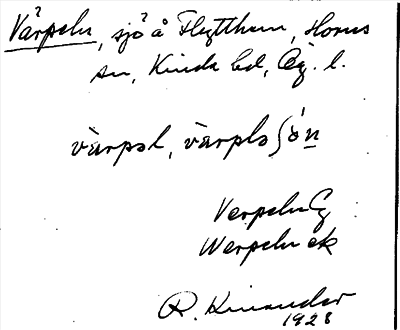 Värpeln, sjö å Flytthem, Horns
sn, Kinda hd, Ög. l.
värpəl, värplsʃón
Verpeln Eg
Werpeln ek
R. Kinander
1928